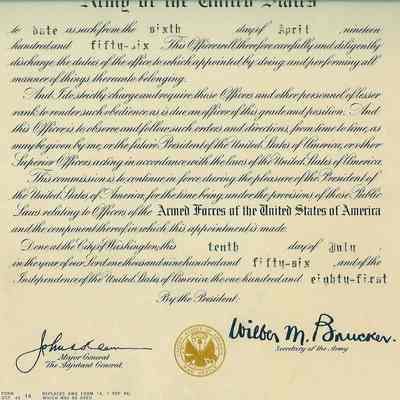 Army of the United States
to date as such from the sixth day of April nineteen
hundred and fifty-six. This Officer will therefore carefully and diligently
discharge the duties of the office to which appointed by doing and performing all
manner of things thereunto belonging.
And I do strictly charge and require those Officers and other personnel of lesser
rank to render such obedience as is due an officer of this grade and position. And
this Officer is to observe and follow such orders and directions, from time to time, as
may be given by me, or the future President of the United States, or other
Superior Officers acting in accordance with the laws of the United States of America.
This commission is to continue in force during the pleasure of the President of
the United States of America, for the time being, under the provisions of those Public
Laws relating to Officers of the Armed Forces of the United States of America
and the component thereof in which this appointment is made.
Done at the City of Washington, this tenth day of July
in the year of our Lord one thousand nine hundred and fifty-six, and of the
Independence of the United States of America the one hundred and eighty-first
By the President:
Wilber M. Brucker.
Major General
The Adjutant General.
Secretary of the Army
FORM
REPLACES